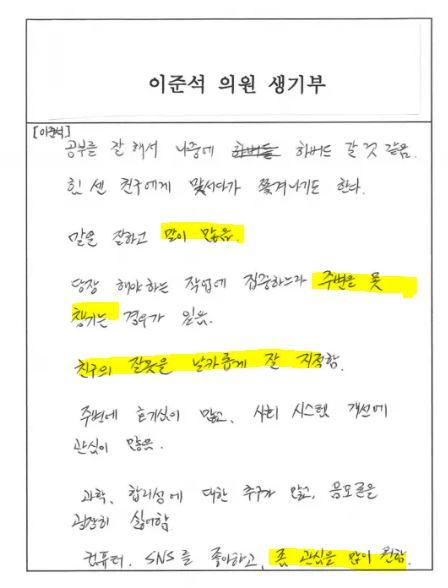 이준석 의원 생기부
[이준석]
공부를 잘 해서 나중에 하버들 하버드 갈 것 같음.
힘 센 친구에게 맞서다가 쫓겨나기도 한다.
말을 잘하고 말이 많음.
당장 해야 하는 작업에 집중하느라 주변을 못
챙기는 경우가 있음.
친구의 잘못을 날카롭게 잘 지적함.
주변에 호기심이 많고, 사회 시스템 개선에
관심이 많음.
과학, 합리성에 대한 추구가 많고, 음모론을
굉장히 싫어함
컴퓨터, SNS를 좋아하고, 관심을 많이 원함.